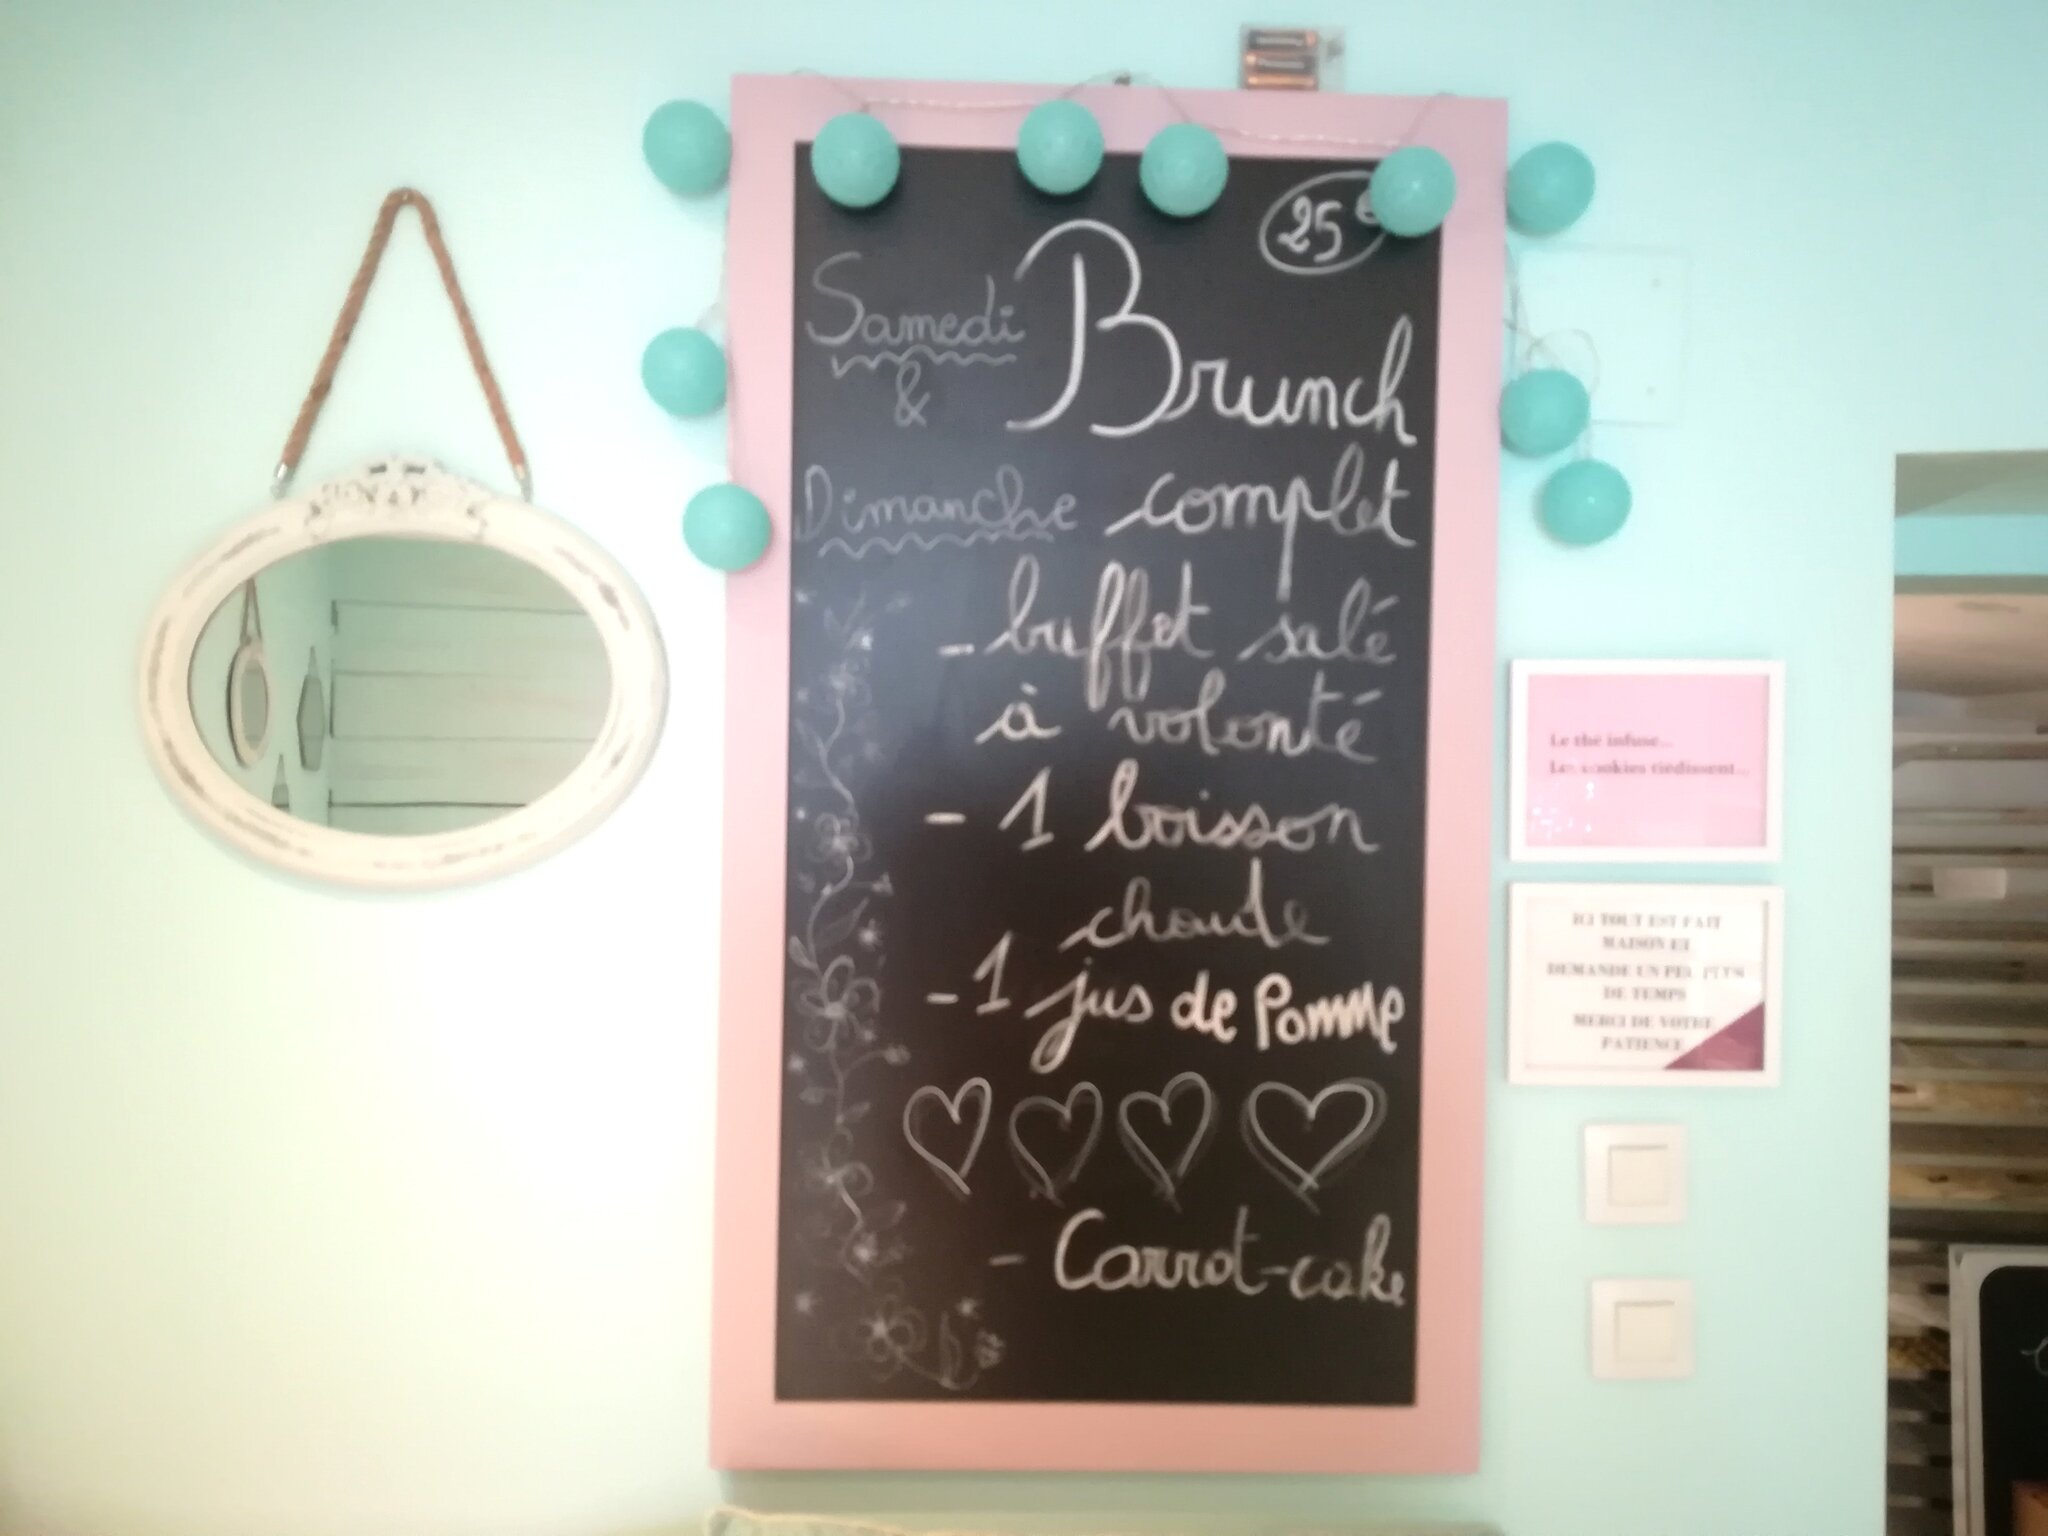 25 €
Samedi
&
Dimanche
Brunch
complet
- buffet salé
à volonté
- 1 boisson
chaude
- 1 jus de Pomme
- Carrot-cake
Le thé infuse...
Les cookies tiédissent...
ICI TOUT EST FAIT
MAISON ET
DEMANDE UN PEU PLUS
DE TEMPS
MERCI DE VOTRE
PATIENCE